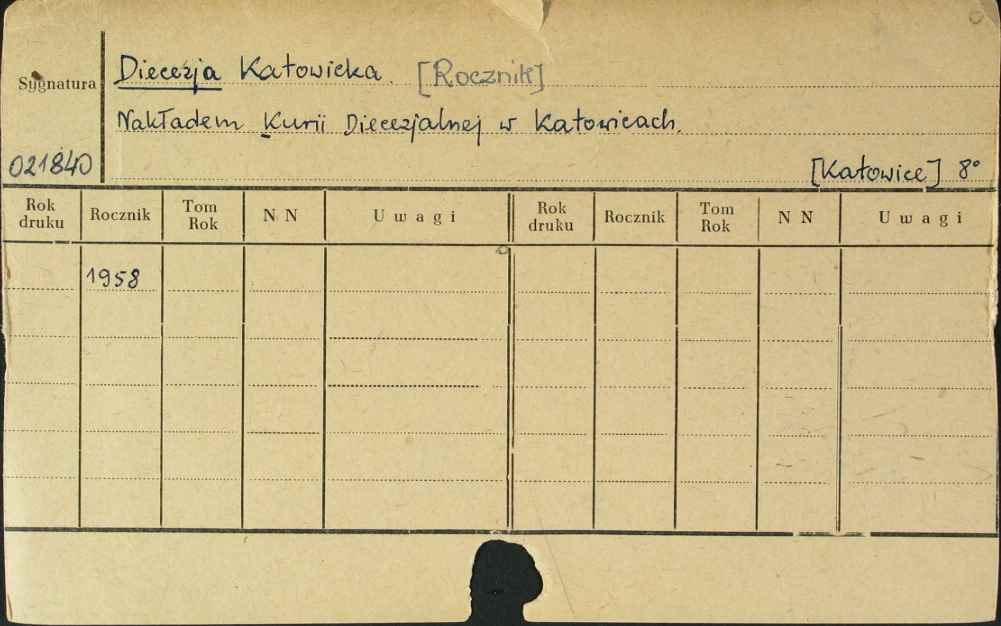 Sygnatura
Diecezja Katowicka. [Rocznik]
Nakładem Kurii Diecezjalnej w Katowicach.
021840
[Katowice] 8°
Rok druku Rocznik Tom Rok N N Uwagi Rok druku Rocznik Tom Rok N N Uwagi
1958